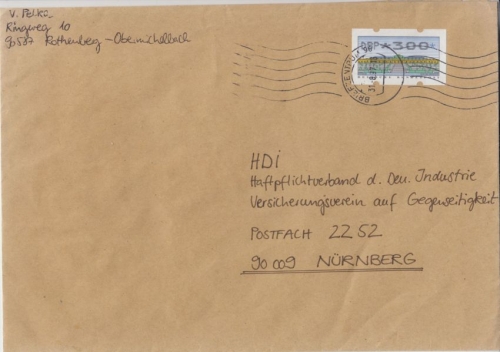 V. Pelka
Ringweg 10
90587 Rothenberg - Obermichelbach
DBP *300
BRIEFZENTRUM
HDi
Haftpflichtverband d. Deu. Industrie
Versicherungsverein auf Gegenseitigkeit
POSTFACH 2252
90009 NÜRNBERG